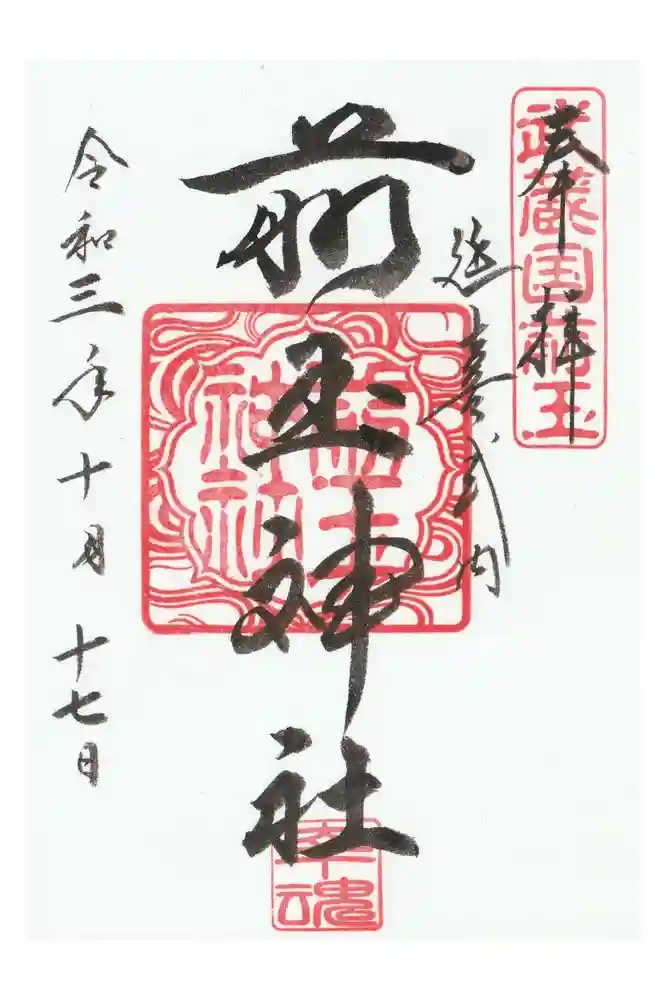 奉拝
武蔵国前玉
延喜式内
前玉神社
前玉
神社
幸魂
令和三年十月十七日